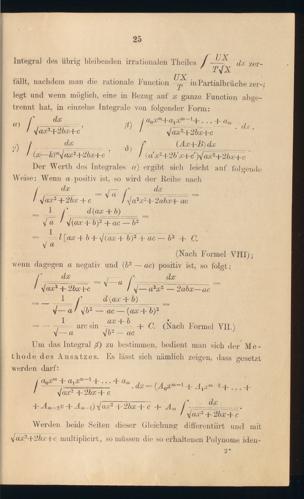 25
Integral des übrig bleibenden irrationalen Theiles ∫ UX / T√X dx zer-
fällt, nachdem man die rationale Function UX / T in Partialbrüche zer-
legt und wenn möglich, eine in Bezug auf x ganze Function abge-
trennt hat, in einzelne Integrale von folgender Form:
α) ∫ dx / √ax²+2bx+c, β) ∫ a₀xᵐ+a₁xᵐ⁻¹+ . . . + aₘ / √ax²+2bx+c . dx,
γ) ∫ dx / (x—k)ᵐ√ax²+2bx+c, δ) ∫ (Ax+B)dx / (a'x²+2b'x+c')√ax²+2bx+c
Der Werth des Integrales α) ergibt sich leicht auf folgende
Weise: Wenn a positiv ist, so wird der Reihe nach
∫ dx / √ax²+2bx+c = √a ∫ dx / √a²x²+2abx+ac =
= 1/√a ∫ d(ax+b) / √(ax+b)²+ac—b² =
= 1/√a l [ax+b+√(ax+b)²+ac—b² + C.
(Nach Formel VIII);
wenn dagegen a negativ und (b²—ac) positiv ist, so folgt:
∫ dx / √ax²+2bx+c = √—a ∫ dx / √—a²x²—2abx—ac =
= — 1/√—a ∫ d(ax+b) / √b²—ac—(ax+b)² =
= — 1/√—a arc sin ax+b / √b²—ac + C. (Nach Formel VII.)
Um das Integral β) zu bestimmen, bedient man sich der Me-
thode des Ansatzes. Es lässt sich nämlich zeigen, dass gesetzt
werden darf:
∫ a₀xᵐ+a₁xᵐ⁻¹+ . . . + aₘ / √ax²+2bx+c . dx = (A₀xᵐ⁻¹ + A₁xᵐ⁻² + . . . +
+ Aₘ₋₂x + Aₘ₋₁) √ax²+2bx+c + Aₘ ∫ dx / √ax²+2bx+c.
Werden beide Seiten dieser Gleichung differentiirt und mit
√ax²+2bx+c multiplicirt, so müssen die so erhaltenen Polynome iden-
2*